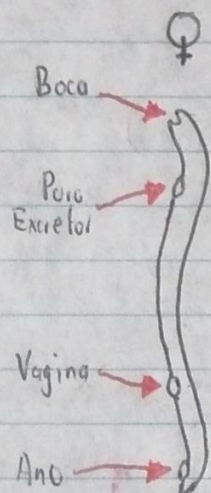 ♀
Boca
Poro
Excretor
Vagina
Ano